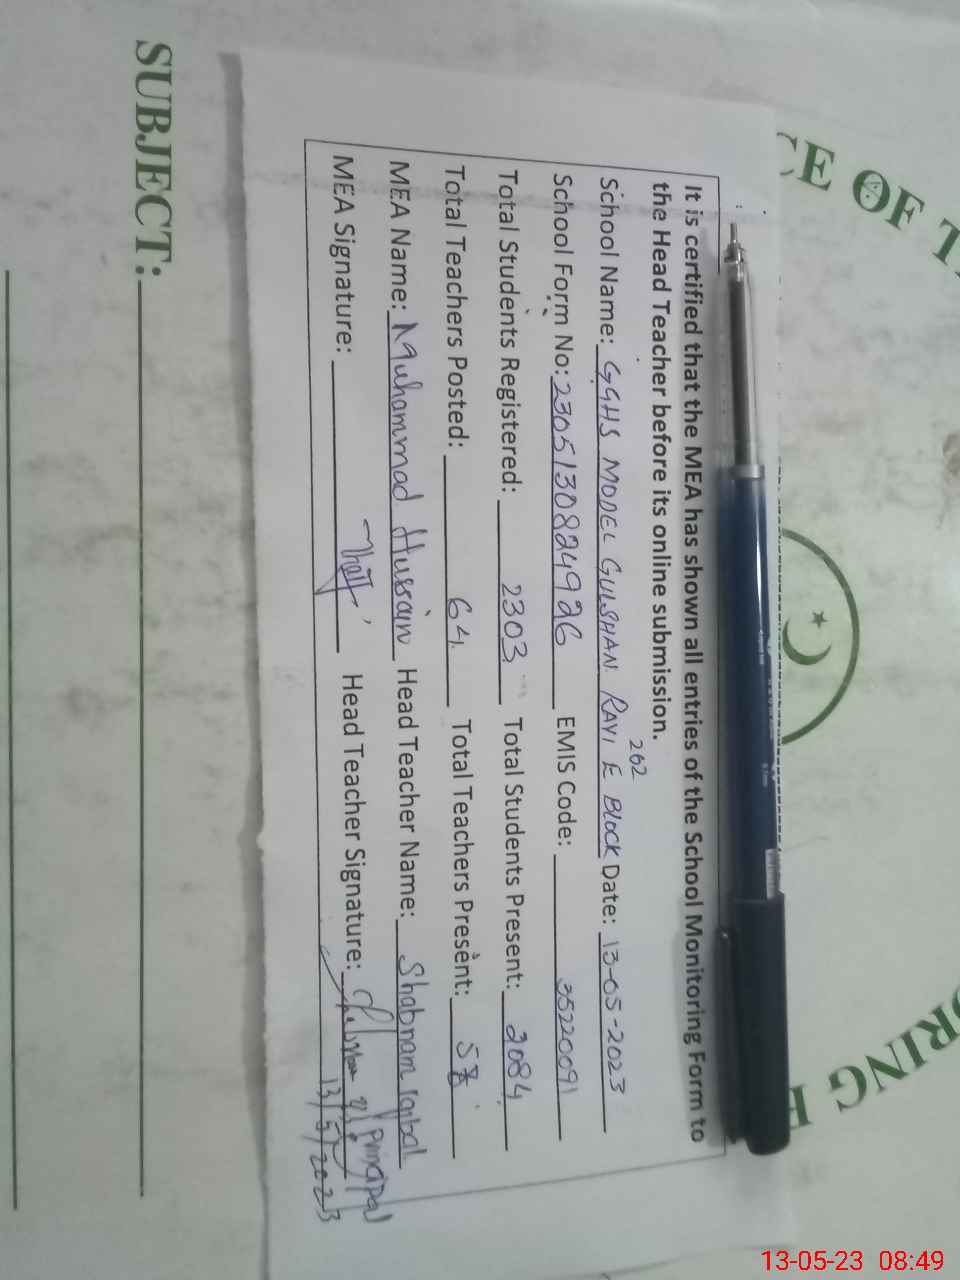 CE OF T
It is certified that the MEA has shown all entries of the School Monitoring Form to
the Head Teacher before its online submission.
262
School Name: GGHS MODEL GULSHAN RAVI E BLOCK Date: 13-05-2023
School Form No: 2305130824926 EMIS Code: 35220091
Total Students Registered: 2303 Total Students Present: 2084
Total Teachers Posted: 64 Total Teachers Present: 58
MEA Name: Muhammad Hussain Head Teacher Name: Shabnam Iqbal
MEA Signature: Head Teacher Signature: Principal
13/5/2023
SUBJECT:
ORING E
13-05-23 08:49